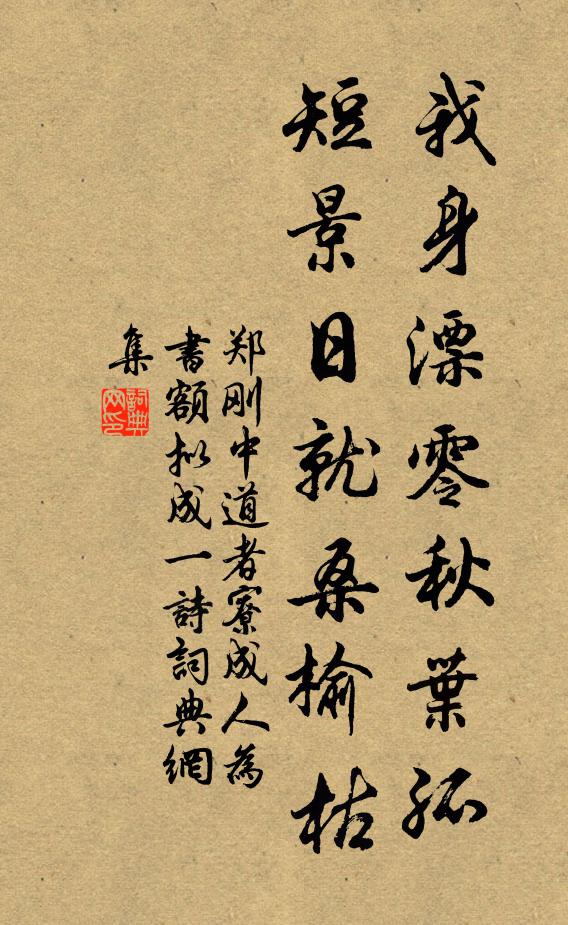 我身漂零秋葉孤
短景日就桑榆枯
郑刚中道者寮成人為
書額拟成一詩詞典網
集
詞典
网印